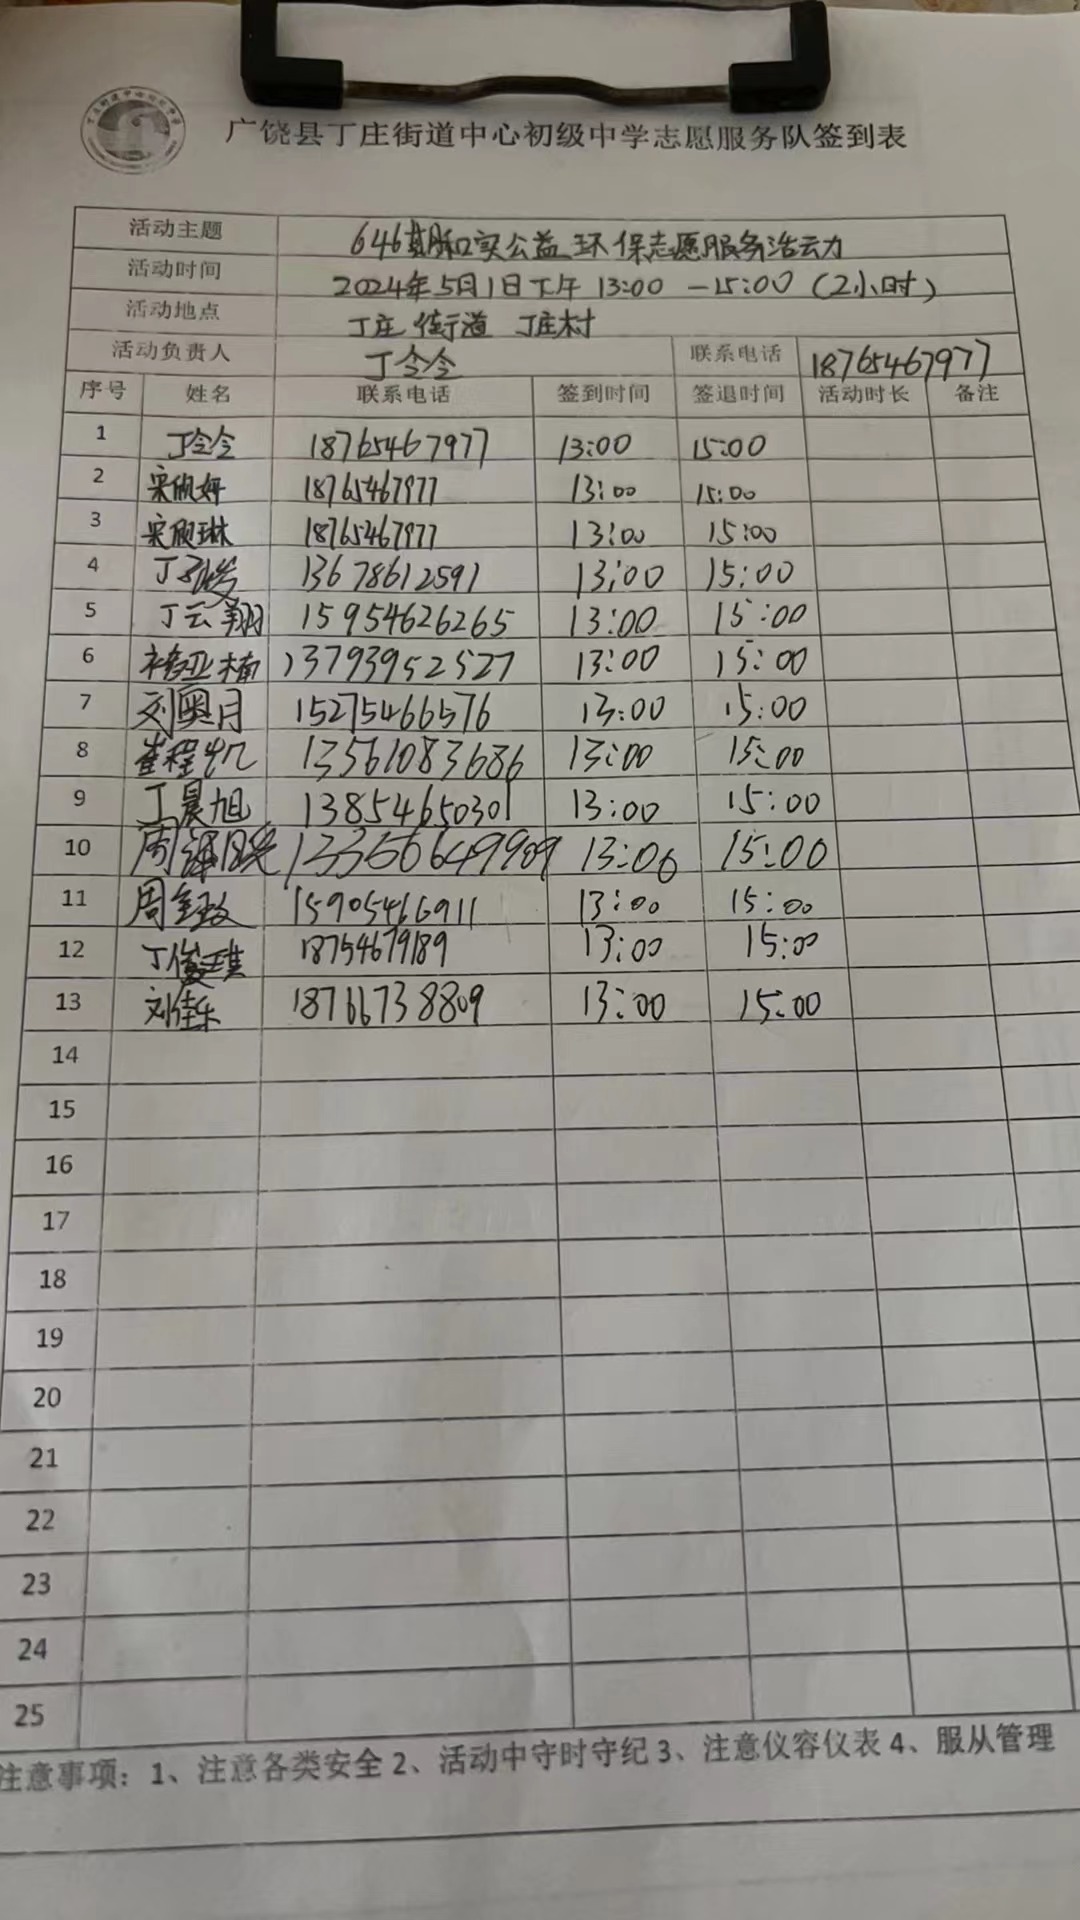 广饶县丁庄街道中心初级中学志愿服务队签到表
活动主题 646期和实公益环保志愿服务活动
活动时间 2024年5月1日下午 13:00 —15:00 (2小时)
活动地点 丁庄街道 丁庄村
活动负责人 丁令令 联系电话 18765467977
序号 姓名 联系电话 签到时间 签退时间 活动时长 备注
1 丁令令 18765467977 13:00 15:00
2 宋欣妍 18765467977 13:00 15:00
3 宋欣琳 18765467977 13:00 15:00
4 丁 13678612591 13:00 15:00
5 丁云翔 15954626265 13:00 15:00
6 亚楠 13793952527 13:00 15:00
7 刘奥月 15275466576 13:00 15:00
8 崔程 13561083686 13:00 15:00
9 丁晨旭 13854650301 13:00 15:00
10 周 13:00 15:00
11 周 15905466911 13:00 15:00
12 丁俊琪 18754679189 13:00 15:00
13 刘佳乐 18766738809 13:00 15:00
14
15
16
17
18
19
20
21
22
23
24
25
注意事项：1、注意各类安全 2、活动中守时守纪 3、注意仪容仪表 4、服从管理